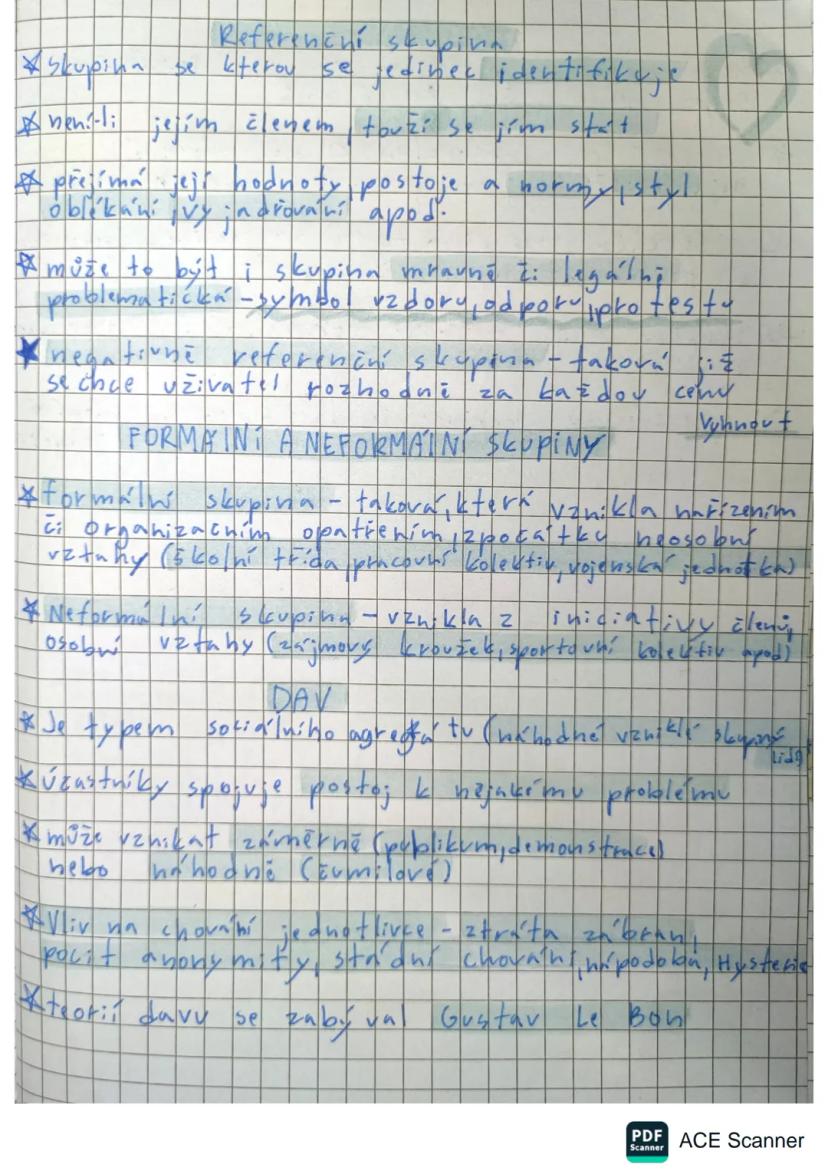 Referenční skupina
skupina se kterou se jedinec identifikuje
není-li jejím členem, touží se jím stát
přejímá její hodnoty, postoje a normy, styl
oblékání, vyjadřování apod.
může to být i skupina mravně či legálně
problematická - symbol vzdoru, odporu, protestu
negativně referenční skupina - taková již
se chce uživatel rozhodně za každou cenu
vyhnout
FORMÁLNÍ A NEFORMÁLNÍ SKUPINY
formální skupina - taková, která vznikla nařízením
či organizačním opatřením, zpočátku neosobní
vztahy (školní třída, pracovní kolektiv, vojenská jednotka)
Neformální skupina - vznikla z iniciativy členů,
osobní vztahy (zájmový kroužek, sportovní kolektiv apod)
DAV
Je typem sociálního agregátu (náhodně vzniklé skupiny
lidí)
účastníky spojuje postoj k nějakému problému
může vznikat záměrně (publikum, demonstrace)
nebo náhodně (čumilové)
Vliv na chování jednotlivce - ztráta zábran,
pocit anonymity, stádní chování, nápodoba, Hysterie
teorií davu se zabýval Gustav Le Bon
PDF
Scanner
ACE Scanner